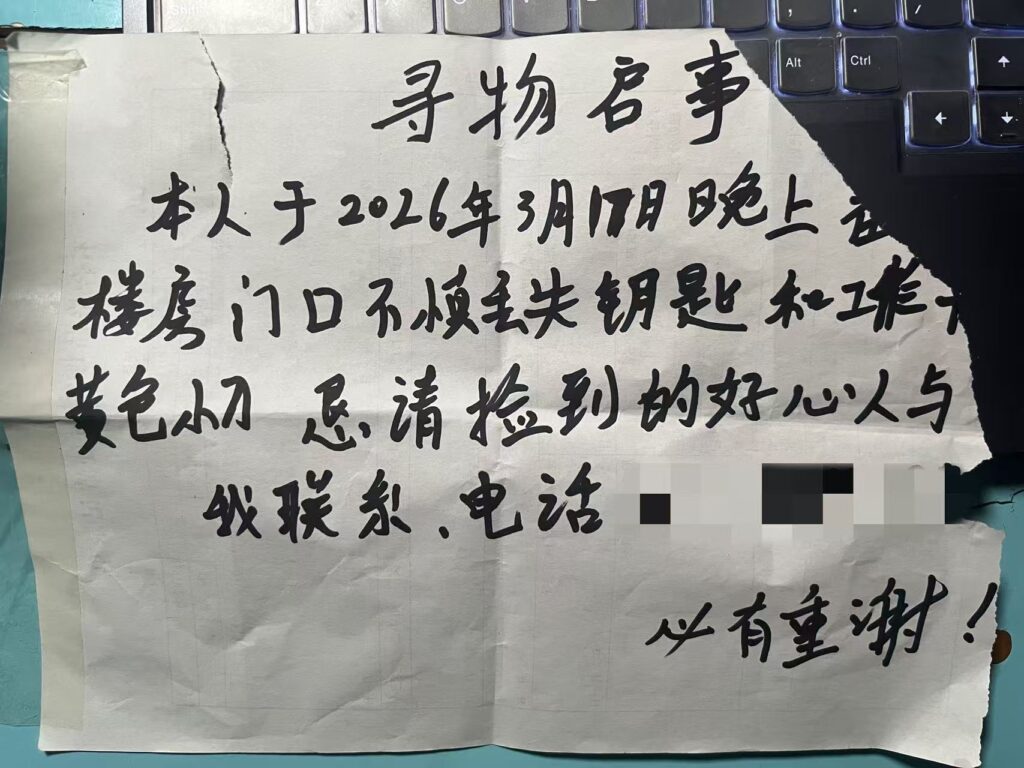 Alt
Ctrl
寻物启事
本人于2026年3月17日晚上
楼房门口不慎丢失钥匙和工作
黄色小刀 恳请捡到的好心人与
我联系、电话
必有重谢!